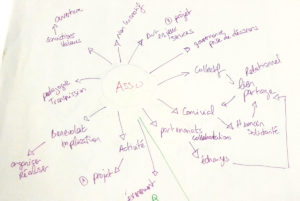 ouverture
non lucratif
① projet
But
services
gouvernance
prise de décisions
Valeurs
Collectif
Relationnel
lien
partage
pédagogie
Transmission
ASSO
Convivial
Humain
Solidarité
partenariats
collaborations
échanges
Bénévolat
Implication
organiser
Réaliser
Activité
projet